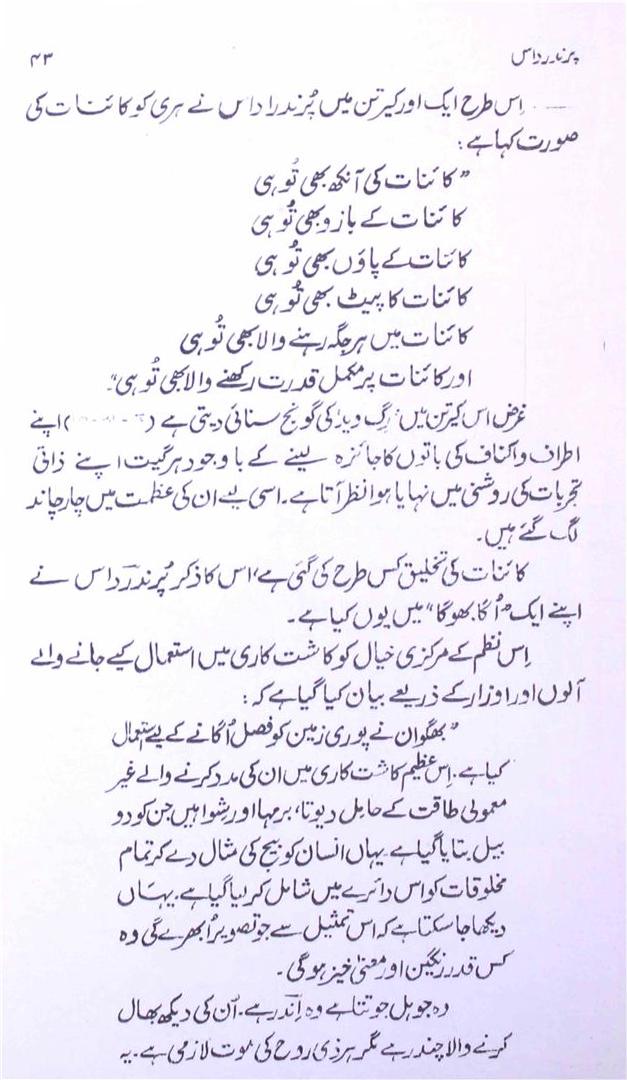 پرندر داس
۴۳
اِس طرح ایک اور کیرتن میں پُرندرا داس نے ہری کو کائنات کی
صورت کہا ہے :
” کائنات کی آنکھ بھی تُو ہی
کائنات کے بازو بھی تُو ہی
کائنات کے پاؤں بھی تُو ہی
کائنات کا پیٹ بھی تُو ہی
کائنات میں ہر جگہ رہنے والا بھی تُو ہی
اور کائنات پر مکمل قدرت رکھنے والا بھی تُو ہی“
غرض اس کیرتن میں ’رگ وید‘ کی گونج سنائی دیتی ہے اپنے
اطراف و اکناف کی باتوں کا جائزہ لینے کے باوجود ہر گیت اپنے ذاتی
تجربات کی روشنی میں نہایا ہوا نظر آتا ہے۔ اسی لیے ان کی عظمت میں چار چاند
لگ گئے ہیں۔
کائنات کی تخلیق کس طرح کی گئی ہے‘ اس کا ذکر پُرندر داس نے
اپنے ایک ”اُگا بھوگا“ میں یوں کیا ہے۔
اِس نظم کے مرکزی خیال کو کاشت کاری میں استعمال کیے جانے والے
آلوں اور اوزار کے ذریعے بیان کیا گیا ہے کہ :
” بھگوان نے پوری زمین کو فصل اُگانے کے لیے استعمال
کیا ہے۔ اِس عظیم کاشت کاری میں ان کی مدد کرنے والے غیر
معمولی طاقت کے حامل دیوتا، برمہا اور شوا ہیں جن کو دو
بیل بتایا گیا ہے یہاں انسان کو بیج کی مثال دے کر تمام
مخلوقات کو اس دائرے میں شامل کر لیا گیا ہے۔ یہاں
دیکھا جا سکتا ہے کہ اس تمثیل سے جو تصویر اُبھرے گی وہ
کس قدر رنگین اور معنی خیز ہو گی۔
وہ جو ہل جوتتا ہے وہ اِندر ہے۔ اُن کی دیکھ بھال
کرنے والا چندر ہے مگر ہر ذی روح کی موت لازمی ہے۔ یہ